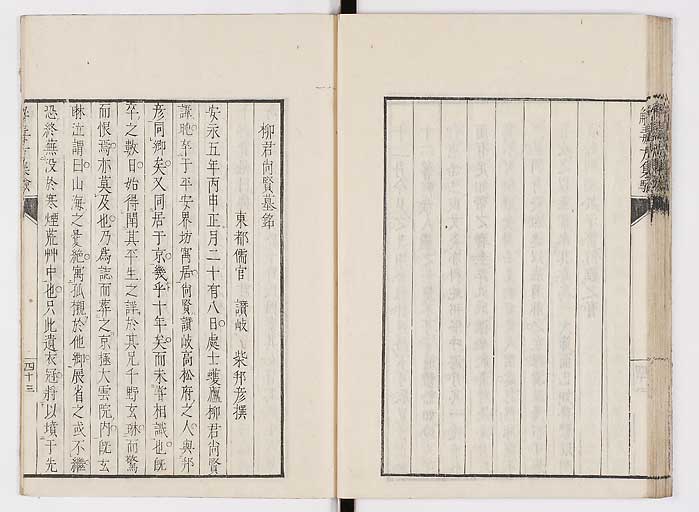 柳君尙賢墓銘
東都儒官　讃岐　柴邦彦撰
安永五年丙申正月二十有八日處士䕶廬柳君尙賢
謙卒于平安界坊寓居尙賢讃岐高松府之人與邦
彦同鄕矣又同居于京幾乎十年矣而未嘗相識也旣
卒之數日始得聞其平生之詳於其兄千野玄琳而驚
而恨焉亦莫及也乃爲誌而葬之京極大雲院內旣玄
琳泣謂曰山海之夐絶寓孤櫬於他鄕展省之或不繼
恐終無沒於寒煙荒艸中也只此遺衣冠將以墳于先
四十三